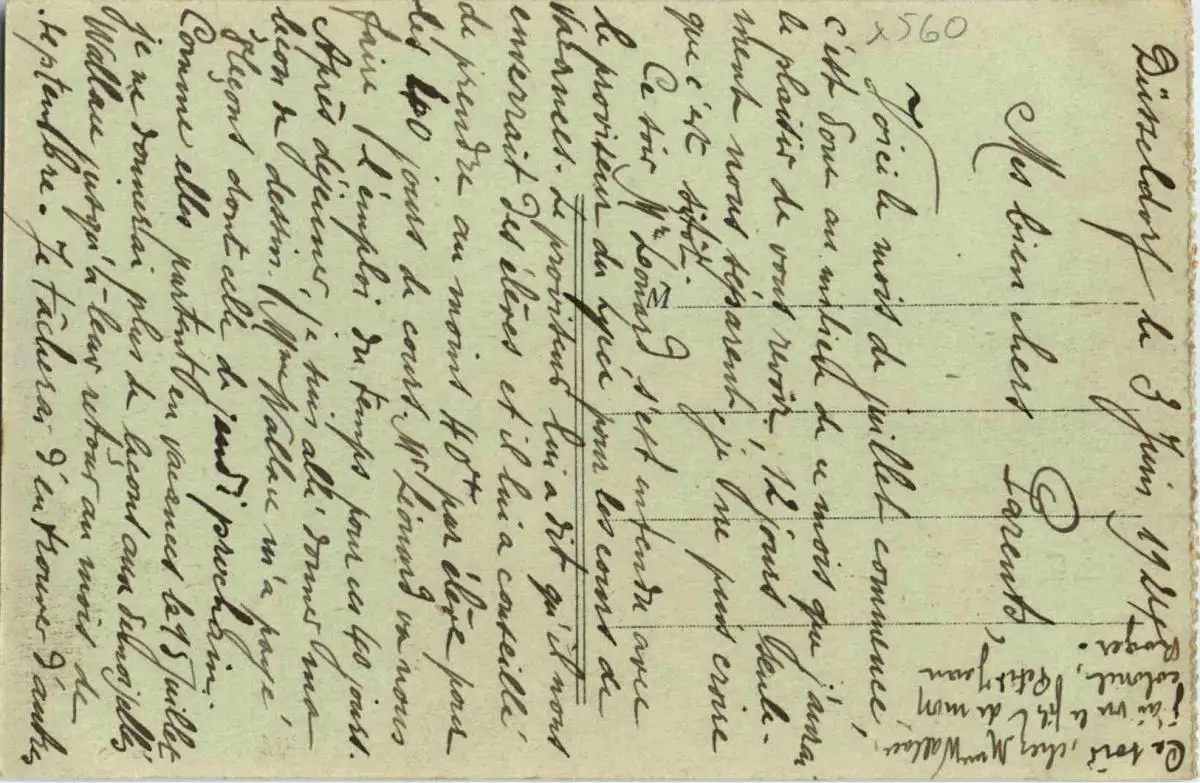 x560
Düsseldorf le 3 Juin 1924
Mes bien chers Parents,
Voici le mois de juillet commencé,
c'est donc au milieu de ce mois que j'aurai
le plaisir de vous revoir. 12 jours seule-
ment nous séparent, je ne puis croire
que c'est sitôt.
Ce soir Mr Léonard s'est entendu avec
le proviseur du lycée pour les cours de
vacances. Le proviseur lui a dit qu'il nous
enverrait des élèves et il lui a conseillé
de prendre au moins 40 par élève pour
les 40 jours de cours. Mr Léonard va nous
faire l'emploi du temps pour ces 40 jours.
Après déjeuner, je suis allé donner ma
leçon de dessin. Mme Wallace m'a payé
leçons dont celle de jeudi prochain.
Comme elles partent en vacances le 15 juillet
je ne donnerai plus de leçons aux demoiselles
Wallace jusqu'à leur retour au mois de
septembre. Je tâcherai d'en trouver d'autres
Ce soir, chez Mme Wallace,
j'ai vu le fils de mon
colonel, Petitjean
Roger.
M